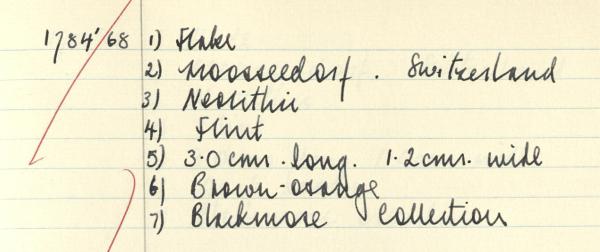 1784'68 1) Flake
2) Moosseedorf. Switzerland
3) Neolithic
4) Flint
5) 3.0 cms. long. 1.2 cms. wide
6) Brown-orange
7) Blackmore Collection